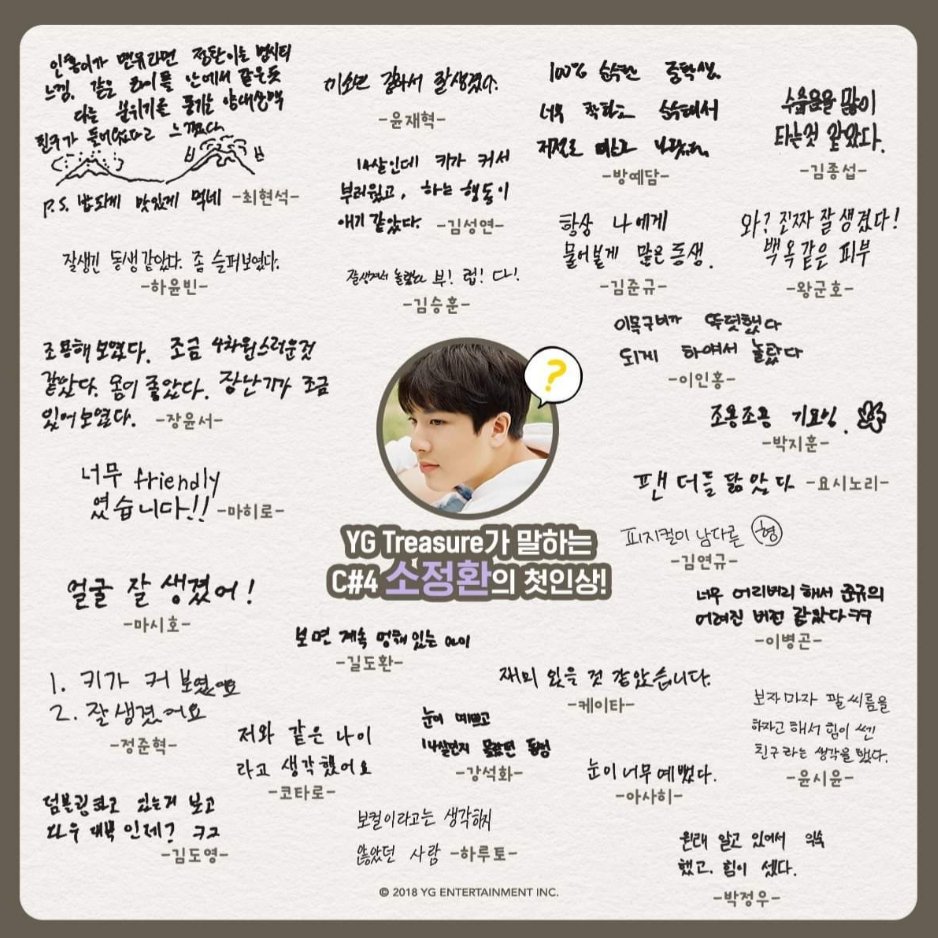 인홍이가 만두라면 정환이는 빙시티
느낌. 같은 라이플 안에서 같은듯
다른 분위기를 풍기는
친구가 들어왔다고 느꼈다.
P.S. 밥 되게 맛있게 먹네 -최현석-
미소년 같아서 잘생겼다.
-윤재혁-
100% 순수한 중학생.
너무 착하고 순수해서
저절로 미소가
-방예담-
수줍음을 많이
타는것 같았다.
-김종섭-
14살인데 키가 커서
부러웠고, 하는 행동이
애기 같았다. -김성연-
잘생긴 동생 같았다. 좀 슬퍼보였다.
-하윤빈-
잘생겨서 놀랐고 부! 럽! 다!
-김승훈-
항상 나에게
물어볼게 많은 동생.
-김준규-
와? 진짜 잘 생겼다!
백옥같은 피부
-왕군호-
이목구비가 뚜렷했다
되게 하얘서 놀랐다
-이인홍-
조용해 보였다. 조금 4차원스러운것
같았다. 몸이 좋았다. 장난기가 조금
있어 보였다. -장윤서-
?
조용조용 기요밍.
-박지훈-
너무 friendly
였습니다!! -마히로-
팬더를 닮았다 -요시노리-
YG Treasure가 말하는
C#4 소정환의 첫인상!
피지컬이 남다른 형
-김연규-
얼굴 잘 생겼어!
-마시호-
너무 어리버리 해서 준규의
어려진 버전 같았다 ㅋㅋ
-이병곤-
보면 계속 멍때있는 아이
-길도환-
1. 키가 커 보였어요
2. 잘생겼어요
-정준혁-
재미 있을 것 같았습니다.
-케이타-
저와 같은 나이
라고 생각했어요
-코타로-
눈이 예쁘고
14살인지 몰랐던 동생
-강석화-
보자마자 팔씨름을
하자고 해서 힘이 쎈
친구라는 생각을 했다.
-윤시윤-
눈이 너무 예뻤다.
-아사히-
덤블링하고 있는거 보고
나무 대북 인제? ㅋㅋ
-김도영-
보컬이라고는 생각하지
않았던 사람 -하루토-
원래 알고 있어서 익숙
했고. 힘이 셌다.
-박정우-
© 2018 YG ENTERTAINMENT INC.